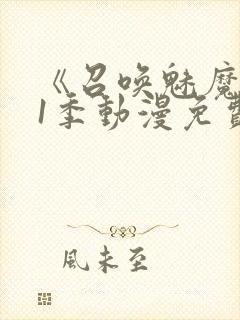 《召唤魅魔
1季動漫免費
風未至